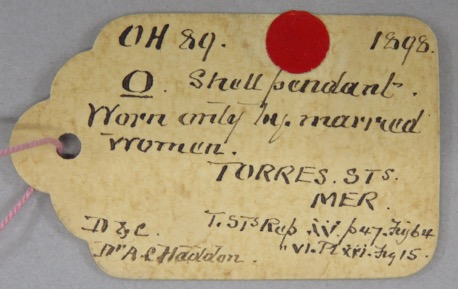 OH 89. 1898.
O. Shell pendant.
Worn only by married
women.
TORRES. STS.
MER.
D & C. T. STS Rep IV. p47. Fig 64
Dr A. C. Haddon. " VI. Pl XXI. Fig 15.